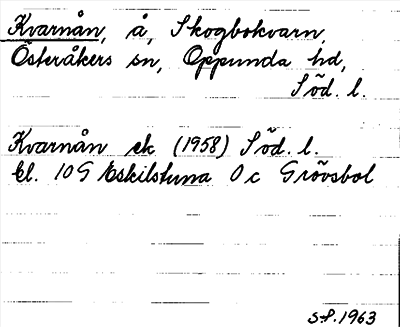 Kvarnån, å, Skogbokvarn,
Österåkers sn, Oppunda hd,
Söd. l.
Kvarnån ek (1958) Söd. l.
bl. 10 G Eskilstuna 0 c Grövsbol
S-P. 1963